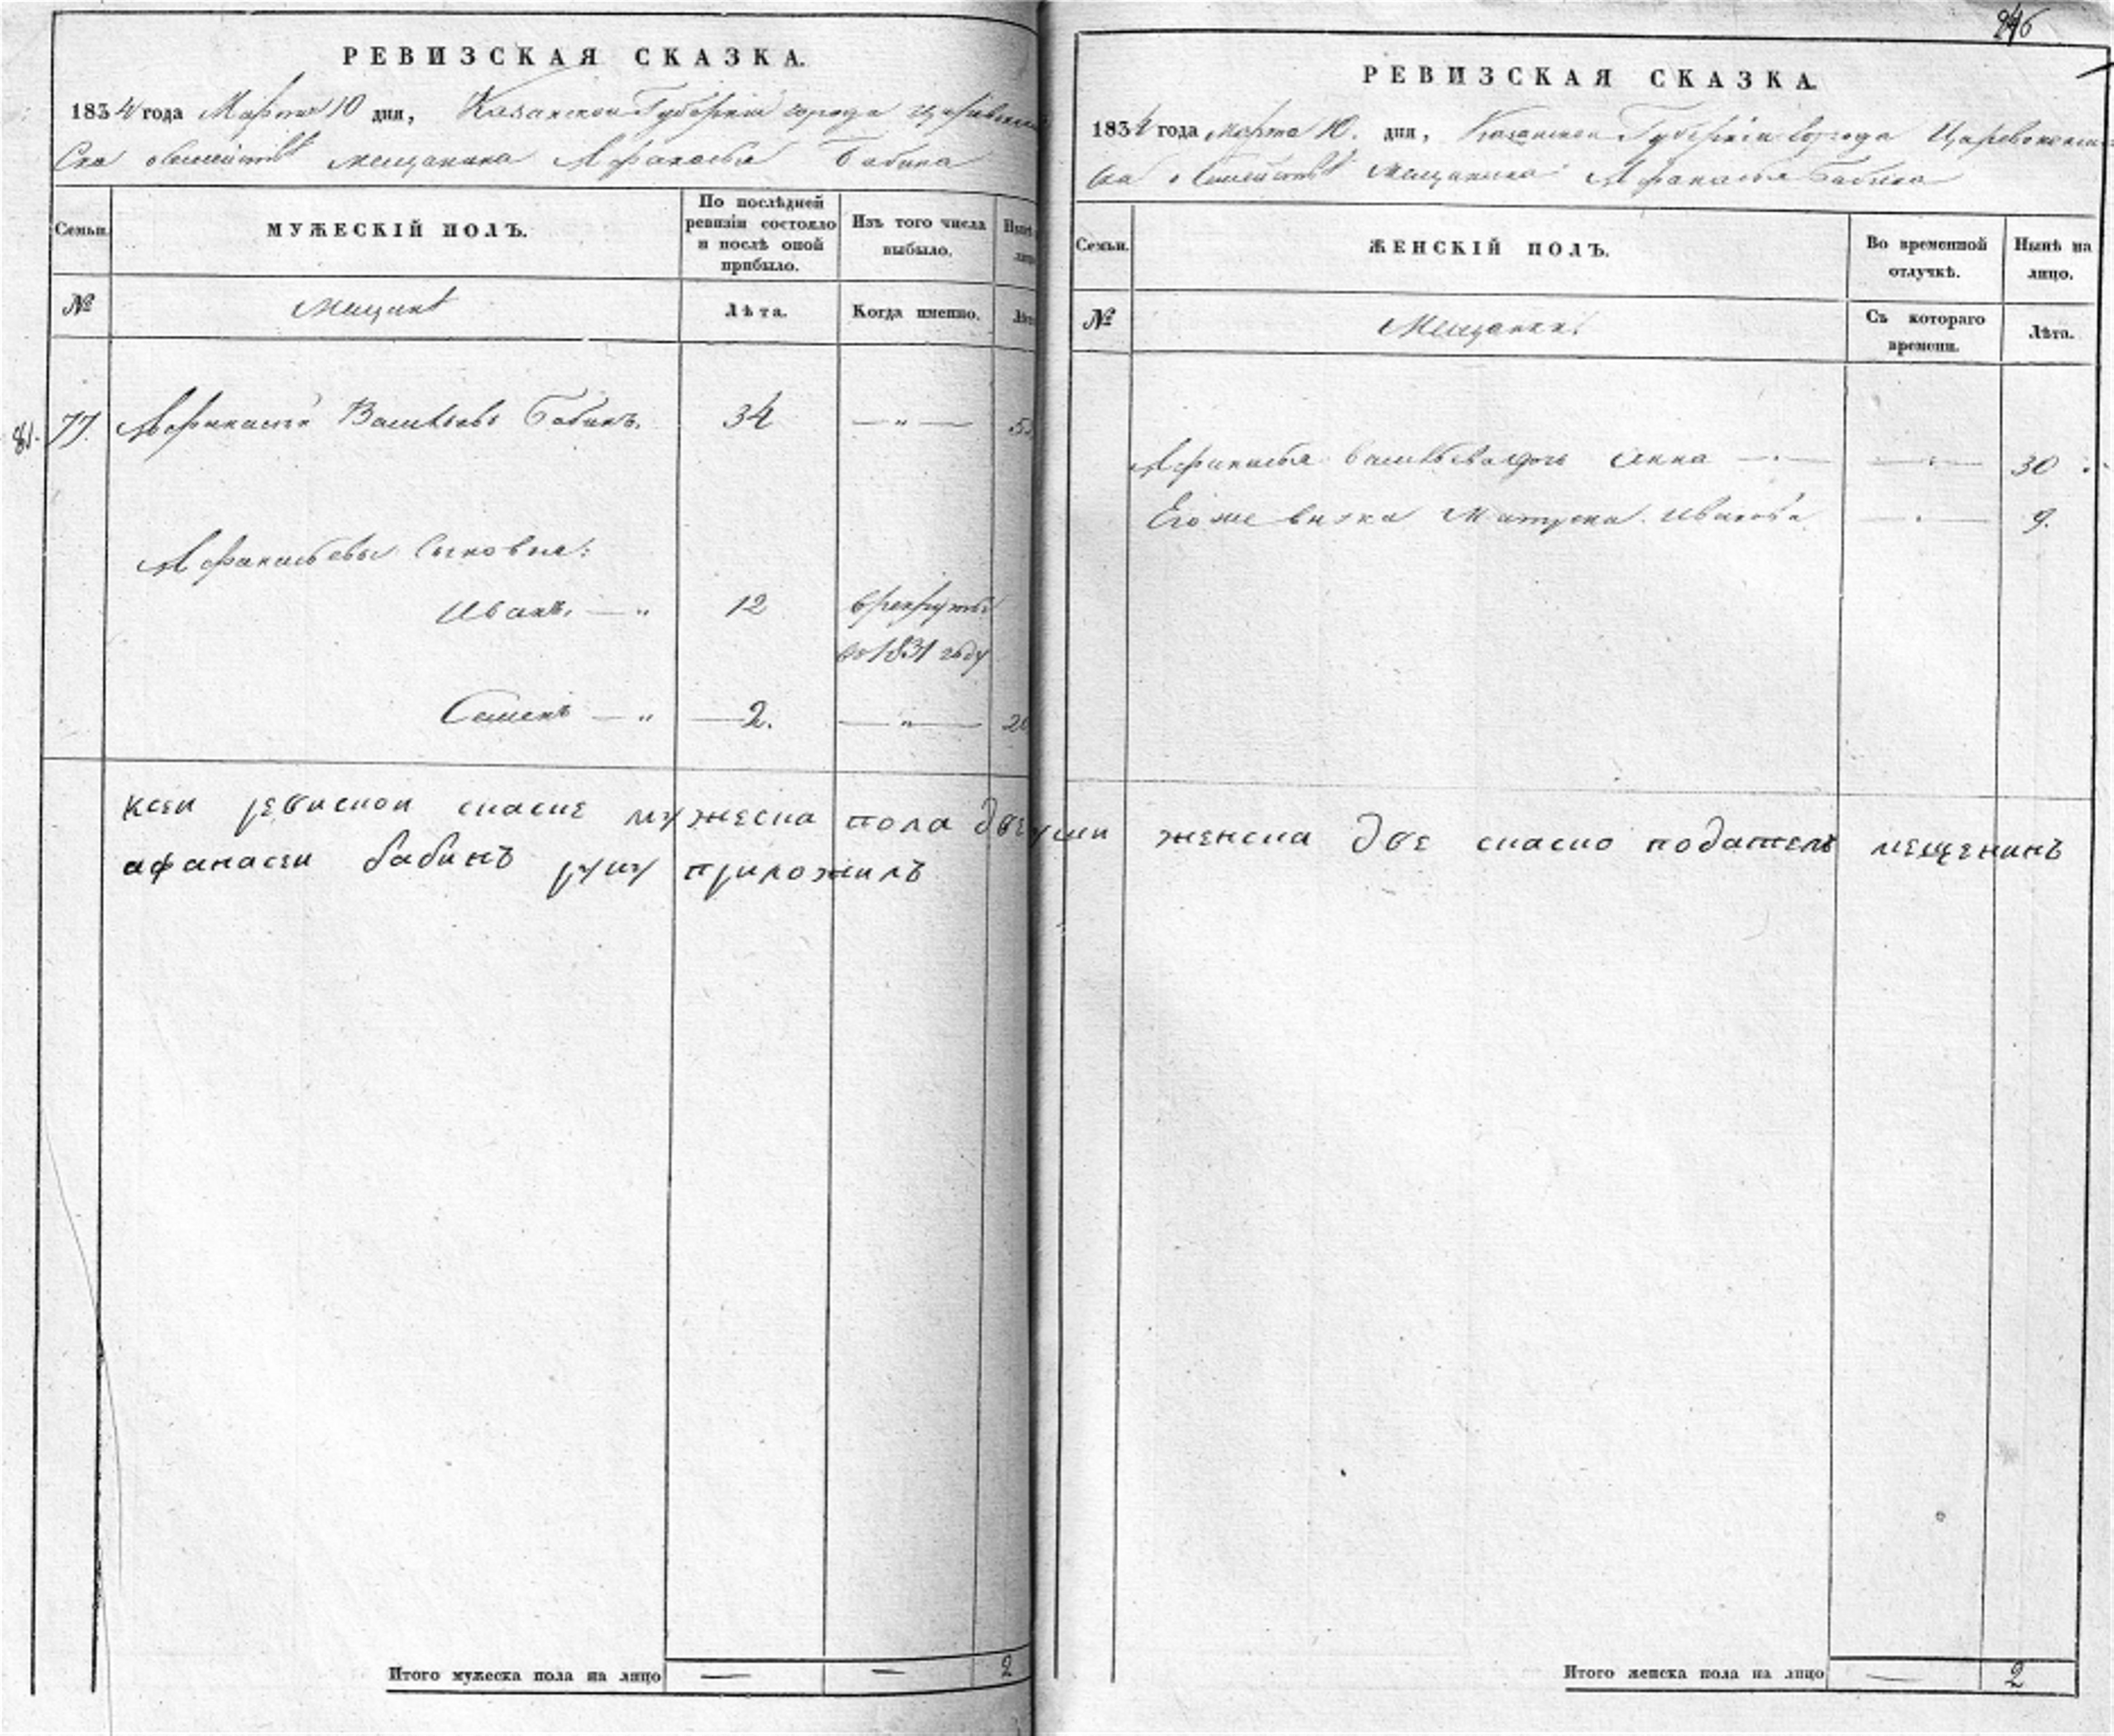 РЕВИЗСКАЯ СКАЗКА.
1834 года Марта 10 дня, Казанской Губернiи города
ска о семействѣ мещанина Афанасья Бабина
Семьи.
МУЖЕСКIЙ ПОЛЪ.
По послѣдней ревизiи состояло и послѣ оной прибыло.
Изъ того числа выбыло.
№
Лѣта.
Когда именно.
81. 77. Афанасiй Васильевъ Бабинъ. 34 — „ —
Афанасьевы сыновья:
Иванъ. — „ 12 в рекруты
во 1831 году
Семенъ — „ — 2. — „ —
ксеи ревиской скаске мужеска пола две
афанасеи бабинъ руку приложилъ
Итого мужеска пола на лицо — — 2
246
РЕВИЗСКАЯ СКАЗКА.
1834 года марта 10. дня, Казанской Губернiи города Царевококшай
ска о семействѣ мещанина Афанасья Бабина
Семьи.
ЖЕНСКIЙ ПОЛЪ.
Во временной отлучкѣ.
Нынѣ на лицо.
№
Мещанки.
Съ котораго времени.
Лѣта.
Афанасья Васильева дочь Анна 30
Его же внука Матрена Иванова 9.
женска две скаско податель мещенинъ
Итого женска пола на лицо — 2